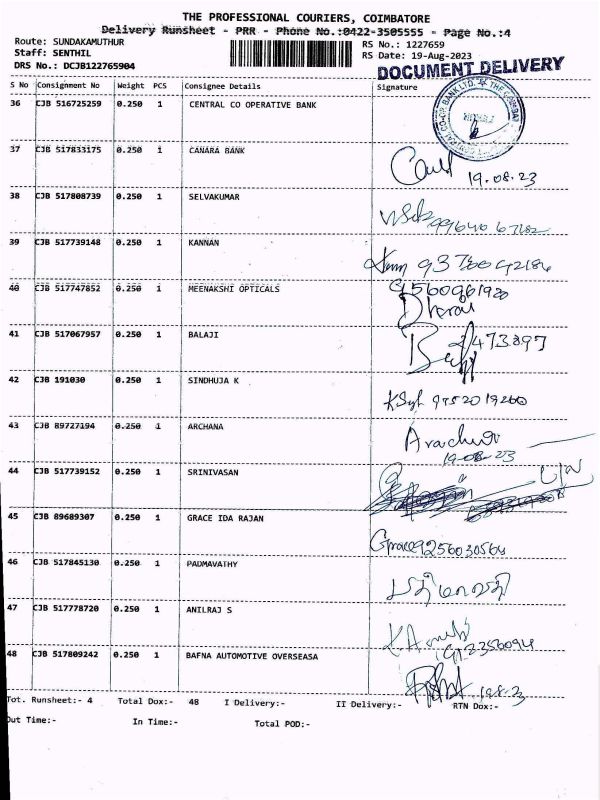 THE PROFESSIONAL COURIERS, COIMBATORE
Delivery Runsheet - PRR - Phone No.:0422-3505555 - Page No.:4
Route: SUNDAKAMUTHUR RS No.: 1227659
Staff: SENTHIL RS Date: 19-Aug-2023
DRS No.: DCJB122765904
DOCUMENT DELIVERY
S No Consignment No Weight PCS Consignee Details Signature
36 CJB 516725259 0.250 1 CENTRAL CO OPERATIVE BANK
37 CJB 517833175 0.250 1 CANARA BANK
19.08.23
38 CJB 517808739 0.250 1 SELVAKUMAR
39 CJB 517739148 0.250 1 KANNAN
40 CJB 517747852 0.250 1 MEENAKSHI OPTICALS
41 CJB 517067957 0.250 1 BALAJI
42 CJB 191030 0.250 1 SINDHUJA K
9752019260
43 CJB 89727194 0.250 1 ARCHANA
19-08-23
44 CJB 517739152 0.250 1 SRINIVASAN
45 CJB 89689307 0.250 1 GRACE IDA RAJAN
Grace 9256030564
46 CJB 517845130 0.250 1 PADMAVATHY
47 CJB 517778720 0.250 1 ANILRAJ S
48 CJB 517809242 0.250 1 BAFNA AUTOMOTIVE OVERSEASA
19.8.23
Tot. Runsheet:- 4 Total Dox:- 48 I Delivery:- II Delivery:- RTN Dox:-
Out Time:- In Time:- Total POD:-